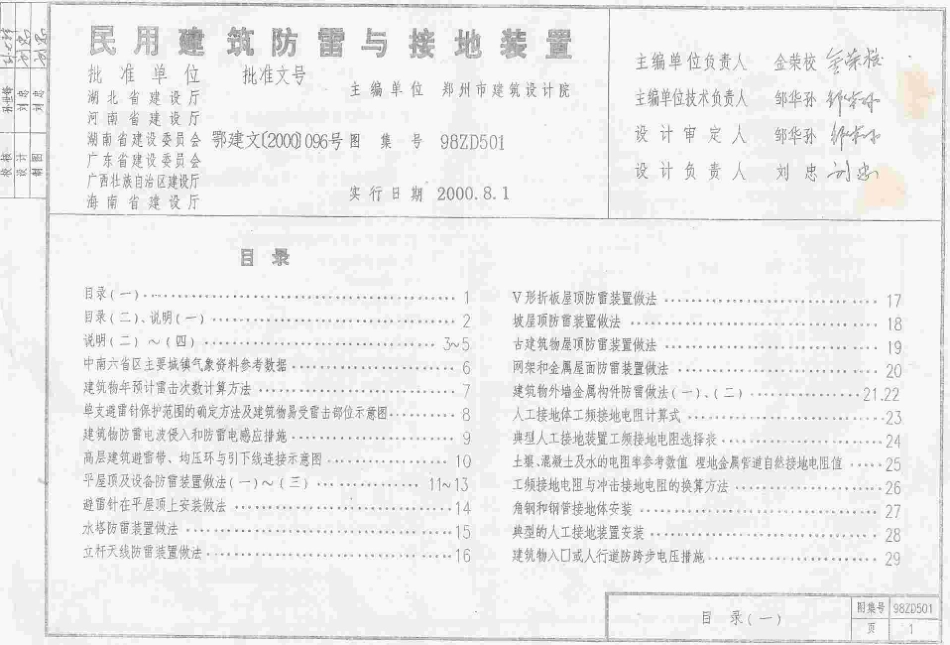 民用建筑防雷与接地装置
批准单位 批准文号
湖北省建设厅
河南省建设厅
湖南省建设委员会 鄂建文〔2000〕096号
广东省建设委员会
广西壮族自治区建设厅
海南省建设厅
主编单位 郑州市建筑设计院
图集号 98ZD501
实行日期 2000.8.1
主编单位负责人 金荣校
主编单位技术负责人 邹华孙
设计审定人 邹华孙
设计负责人 刘忠 刘忠
校核
设计 刘忠
制图 刘忠
目录
目录(一) 1
目录(二)、说明(一) 2
说明(二)～(四) 3~5
中南六省区主要城镇气象资料参考数据 6
建筑物年预计雷击次数计算方法 7
单支避雷针保护范围的确定方法及建筑物易受雷击部位示意图 8
建筑物防雷电波侵入和防雷电感应措施 9
高层建筑避雷带、均压环与引下线连接示意图 10
平屋顶及设备防雷装置做法(一)～(三) 11~13
避雷针在平屋顶上安装做法 14
水塔防雷装置做法 15
立杆天线防雷装置做法 16
V形折板屋顶防雷装置做法 17
坡屋顶防雷装置做法 18
古建筑物屋顶防雷装置做法 19
网架和金属屋面防雷装置做法 20
建筑物外墙金属构件防雷做法(一)、(二) 21.22
人工接地体工频接地电阻计算式 23
典型人工接地装置工频接地电阻选择表 24
土壤、混凝土及水的电阻率参考数值 埋地金属管道自然接地电阻值 25
工频接地电阻与冲击接地电阻的换算方法 26
角钢和钢管接地体安装 27
典型的人工接地装置安装 28
建筑物入口或人行道防跨步电压措施 29
目录(一)
图集号 98ZD501
页 1